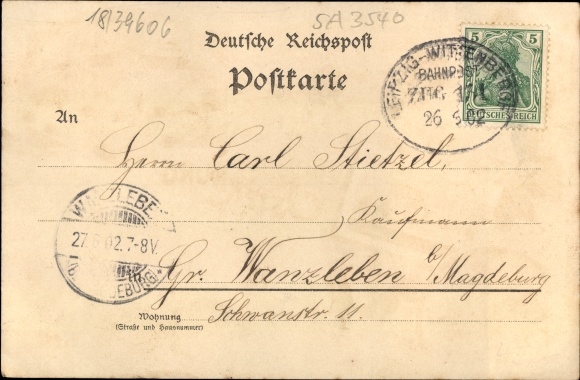 18/39606
5A3540
Deutsche Reichspost
Postkarte
5 5
DEUTSCHES REICH
LEIPZIG-WITTENBERGE
BAHNPOST
ZUG
26 02
An
Herrn Carl Stietzel
Kaufmann
Gr. Wanzleben b/Magdeburg
Schwanstr. 11.
Wohnung
(Straße und Hausnummer)
WANZLEBEN
27 02.7-8V.